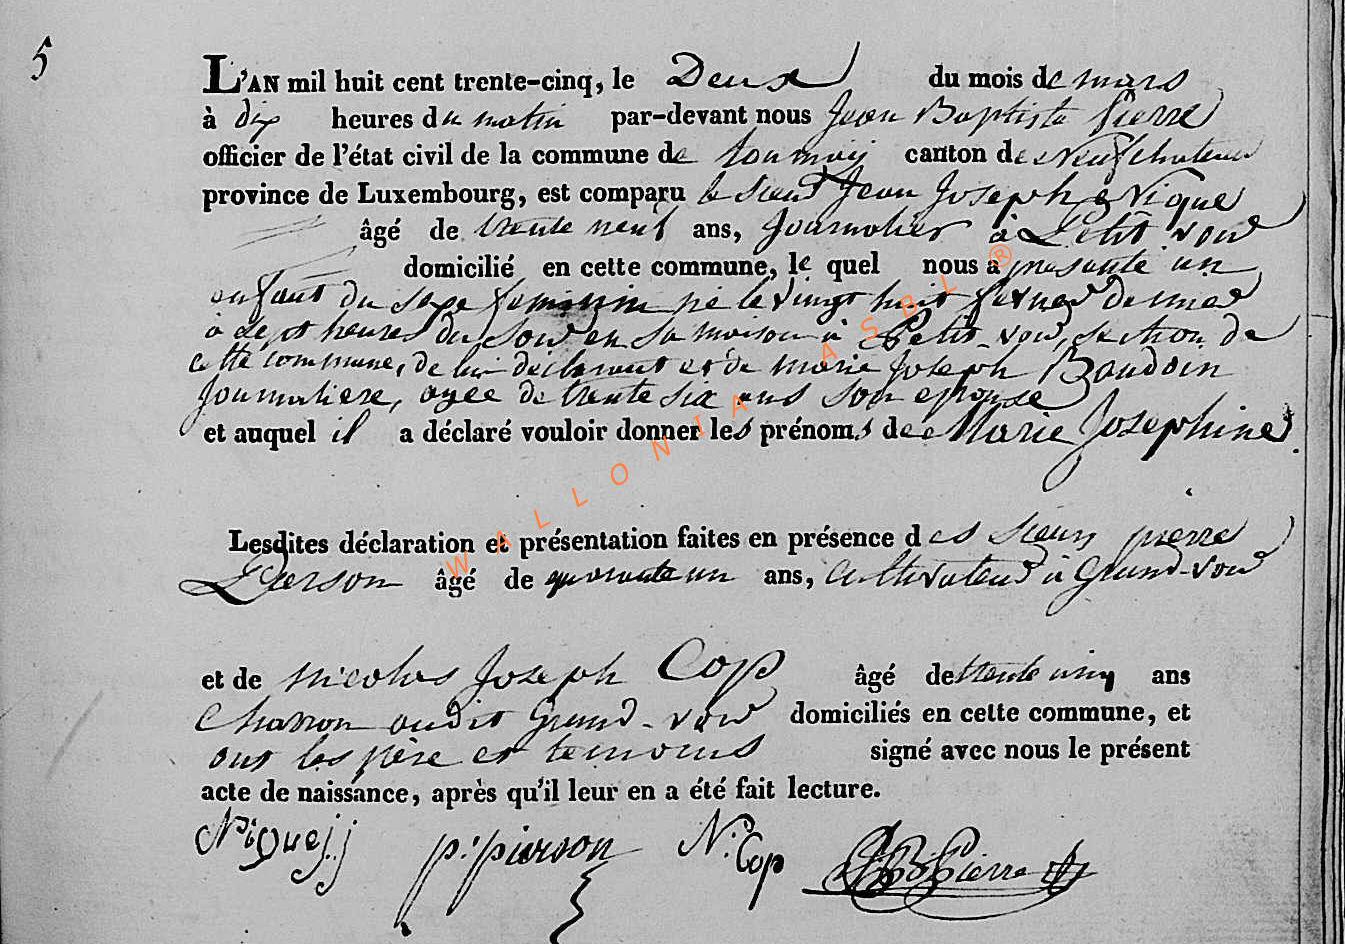 5
L'AN mil huit cent trente-cinq, le Deux du mois de mars
à dix heures du matin par-devant nous Jean Baptiste Pierre
officier de l'état civil de la commune de tournay canton de Neufchateau
province de Luxembourg, est comparu le sieur Jean Joseph Nique
âgé de trente neuf ans, Journalier à Petit-voir
domicilié en cette commune, lequel nous a présenté un
enfant du sexe feminin né le vingt huit fevrier dernier
à sept heures du soir en sa maison à Petit-voir, section de
cette commune, de lui déclarant et de marie Joseph Baudoin
Journaliere, agée de trente six ans son epouse
et auquel il a déclaré vouloir donner les prénoms de Marie Josephine.
Lesdites déclaration et présentation faites en présence des sieurs pierre
Pierson âgé de quarante un ans, cultivateur à Grand-voir
et de Nicolas Joseph Cop âgé de trente cinq ans
Charron audit Grand-voir domiciliés en cette commune, et
ont les père et temoins signé avec nous le présent
acte de naissance, après qu'il leur en a été fait lecture.
Nique j j p. pierson N. Cop JB Pierre
WALLONIA ASBL ®